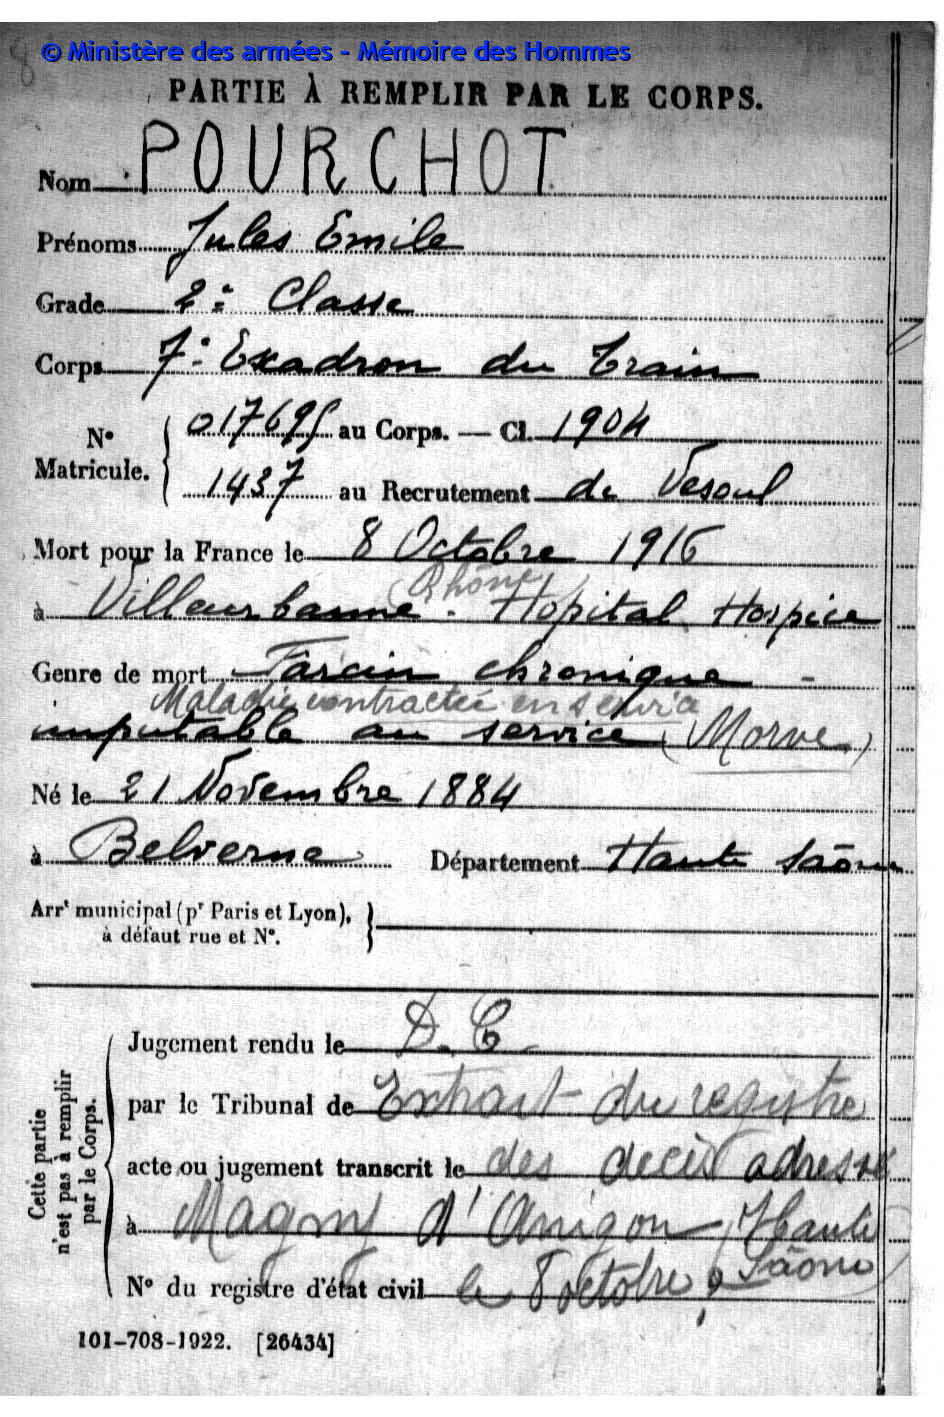 © Ministère des armées - Mémoire des Hommes
PARTIE À REMPLIR PAR LE CORPS.
Nom POURCHOT
Prénoms Jules Emile
Grade 2e Classe
Corps 7e Escadron du Train
N° Matricule. 017695 au Corps. — Cl. 1904
1437 au Recrutement de Vesoul
Mort pour la France le 8 Octobre 1916
(Rhône)
à Villeurbanne - Hopital Hospice
Genre de mort Farcin chronique -
Maladie contractée en service
imputable au service (Morve)
Né le 21 Novembre 1884
à Belverne Département Haute Saône
Arrt municipal (pr Paris et Lyon),
à défaut rue et N°.
Cette partie n'est pas à remplir par le Corps.
Jugement rendu le D. C.
par le Tribunal de Extrait du registre
acte ou jugement transcrit le des décès adressé
à Magny d'Anigon (Haute
Saône)
N° du registre d'état civil le 8 octobre
101-708-1922. [26434]